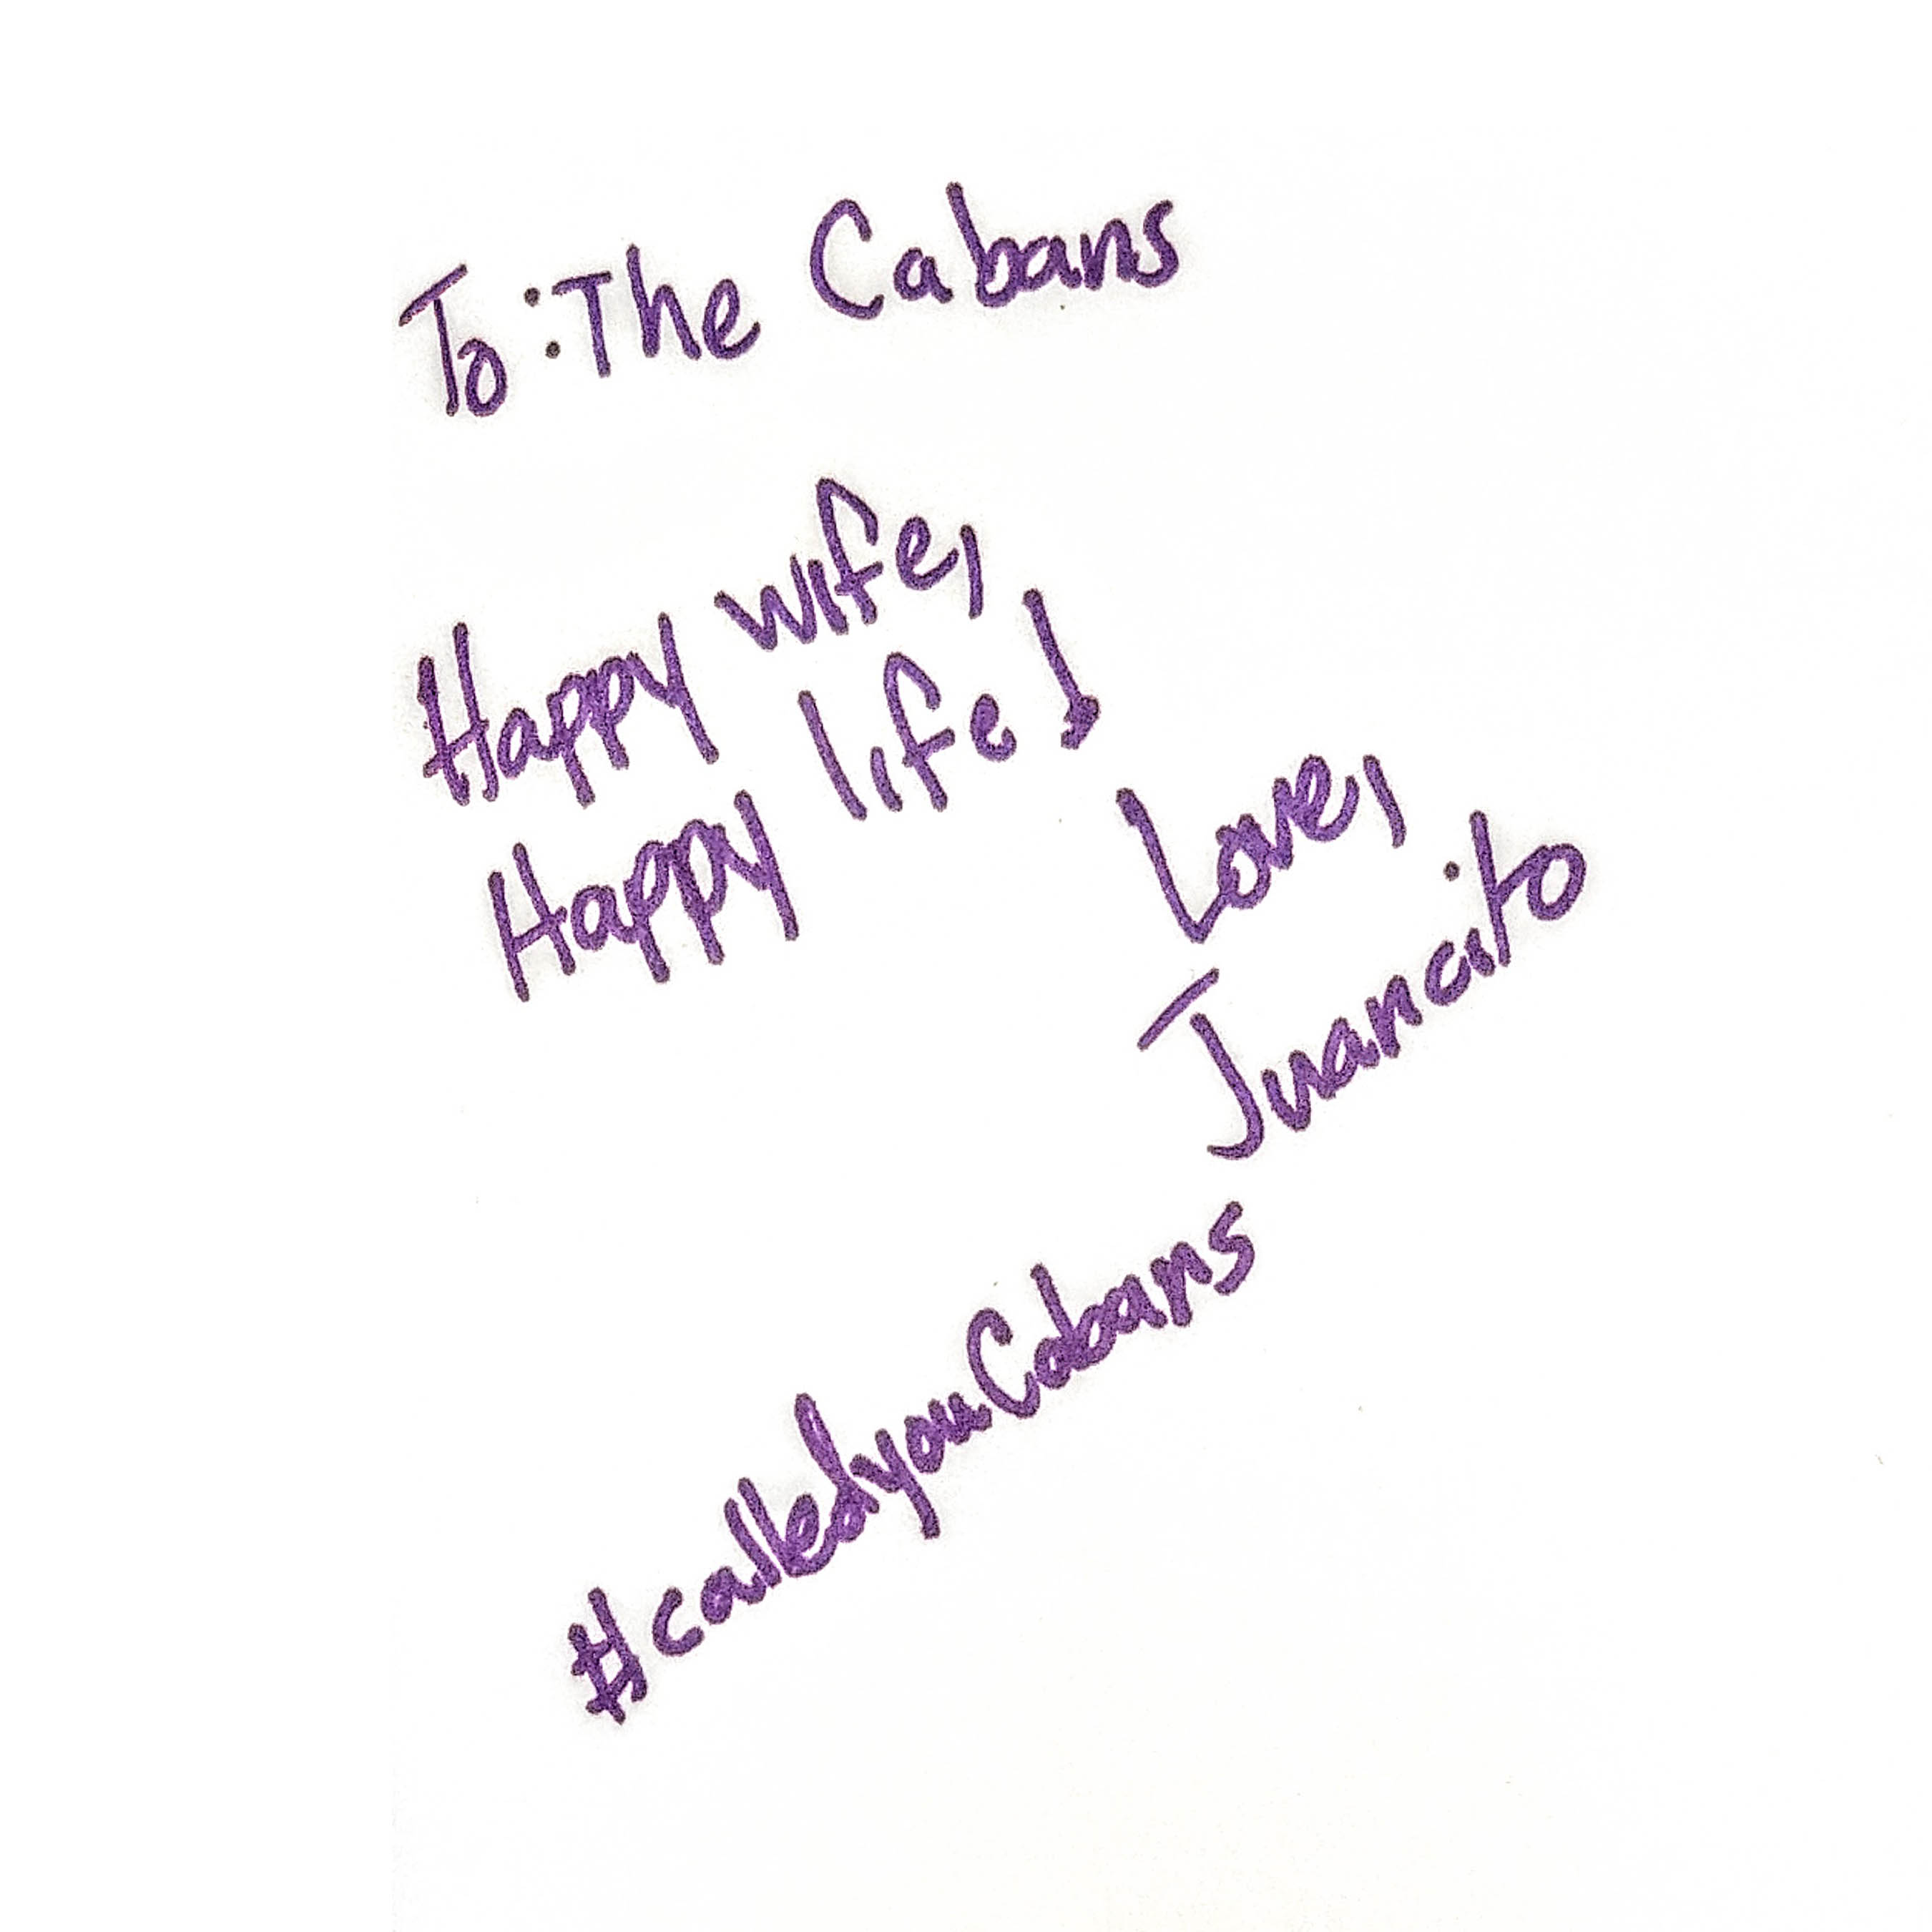 To: The Cabans
Happy wife,
Happy life!
Love,
Juancito
#calledyouCabans